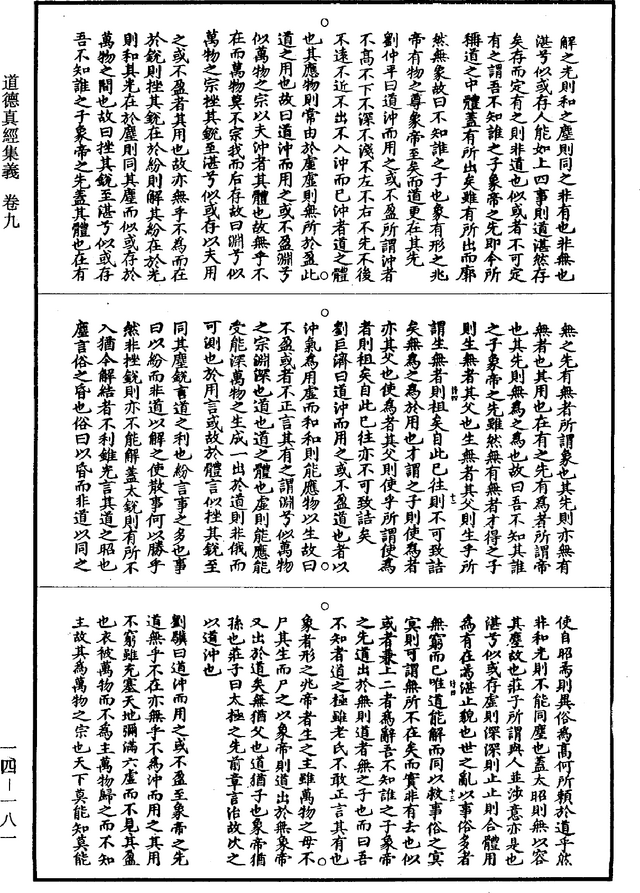 道德真經集義 卷九
一四—一八一
解之光則和之塵則同之非有也非無也
湛兮似或存人能如上四事則道湛然存
矣存而定有之則非道也似或者不可定
有之謂吾不知誰之子象帝之先即令所
稱道之中體蓋有所出矣雖有所出而廓
然無象故曰不知誰之子也象有形之兆
帝有物之尊象帝至矣而道更在其先
劉仲平曰道沖而用之或不盈所謂沖者
不高不下不深不淺不左不右不先不後
不遠不近不出不入沖而已沖者道之體
也其應物則常由於虛虛則無所於盈此
道之用也故曰道沖而用之或不盈淵兮
似萬物之宗以夫沖者其體也故無乎不
在而萬物莫不宗我而后存故曰淵兮似
萬物之宗挫其銳至湛兮似或存以夫用
之或不盈者其用也故亦無乎不為而在
於銳則挫其銳在於紛則解其紛在於光
則和其光在於塵則同其塵而似或存於
萬物之間也故曰挫其銳至湛兮似或存
吾不知誰之子象帝之先蓋其體也在有
無之先有無者所謂象也其先則亦無有
無者也其用也在有之先有為者所謂帝
也其先則無為之為也故曰吾不知其誰
之子象帝之先雖然無有無者才得之子
則生無者其父也生無者其父則生乎所
謂生無者則祖矣自此已往則不可致詰
矣無為之為於用也才謂之子則使為者
亦其父也使為者其父則使乎所謂使為
者則祖矣自此已往亦不可致詰矣
劉巨濟曰道沖而用之或不盈道也者以
沖氣為用虛而和和則能應物以生故曰
不盈或者不正言其有之謂淵兮似萬物
之宗淵深也道也道之體也虛則能應能
受能深萬物之生成一出於道則非俄而
可測也於用言或故於體言似挫其銳至
同其塵銳言道之利也紛言事之多也事
曰以紛而非道以解之使散事何以勝乎
然非挫銳則亦不能解蓋太銳則有所不
入猶令解結者不利錐光言其道之昭也
塵言俗之昏也俗曰以昏而非道以同之
使自昭焉則異俗為高何所賴於道乎然
非和光則不能同塵也蓋太昭則無以容
其塵故也莊子所謂與人並涉意亦是也
湛兮似或存虛則深深則止止則合體用
為有在焉湛止貌也世之亂以事俗多者
無窮而已唯道能解而同以救事俗之冥
冥則可謂無所不在矣而實非有去也似
或者兼上二者為辭吾不知誰之子象帝
之先道出於無則道者無之子也而曰吾
不知者道之極雖老氏不敢正言其有也
象者形之兆帝者生之主雖萬物之母不
尸其生而尸之以象帝則道出於無象帝
又出於道矣無猶父也道猶子也象帝猶
孫也莊子曰太極之先前章言治故次之
以道沖也
劉驥曰道沖而用之或不盈至象帝之先
道無乎不在亦無乎不為沖而用之其用
不窮雖充塞天地彌滿六虛而不見其盈
也衣被萬物而不為主萬物歸之而不知
主故其為萬物之宗也天下莫能知莫能